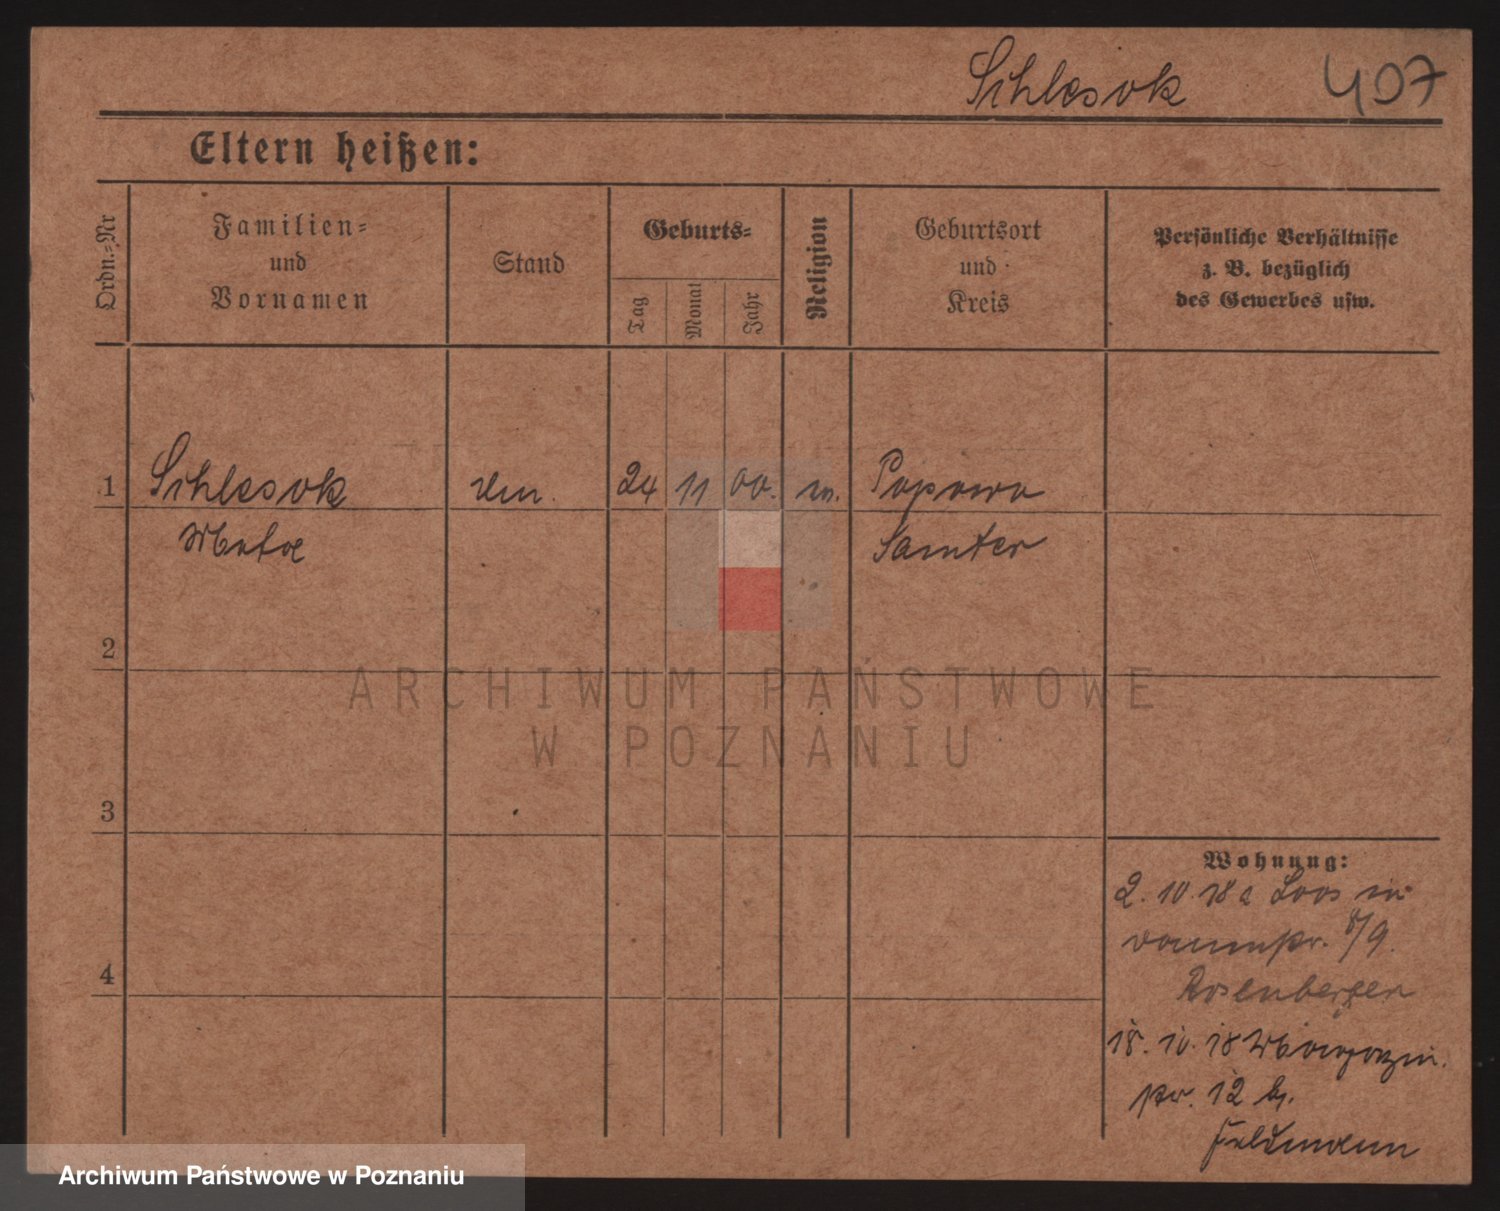 Schlesok 407
Eltern heißen:
Ordn.=Nr
Familien=
und
Vornamen
Stand
Geburts=
Tag
Monat
Jahr
Religion
Geburtsort
und
Kreis
Persönliche Verhältnisse
z. B. bezüglich
des Gewerbes usw.
1 Schlesok 24 11 00. m. Popowo
Meta Samter
2
ARCHIWUM PAŃSTWOWE
W POZNANIU
3
Wohnung:
2. 10. 18 a Loos in
8/9.
4
Rosenberger
18. 10. 18
str. 12 b.
Feldmann
Archiwum Państwowe w Poznaniu